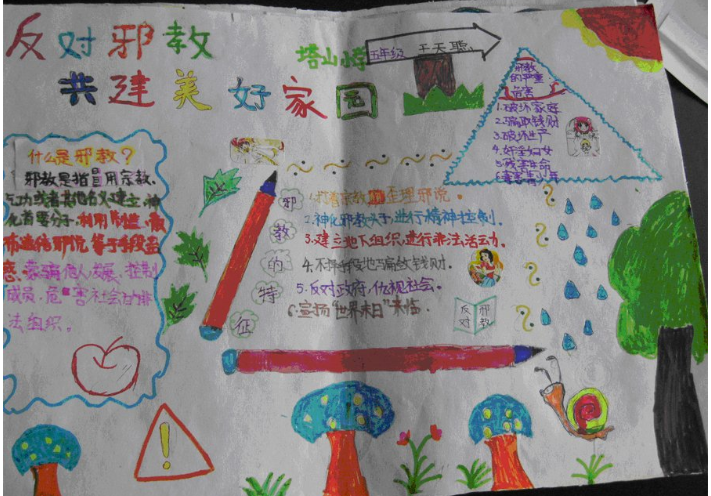 反对邪教
共建美好家园
塔山小学 五年级 王天聪
什么是邪教？
邪教是指冒用宗教、
气功或者其他名义建立，神
化首要分子，利用制造、散
布迷信邪说等手段蛊
惑、蒙骗他人，发展、控制
成员，危害社会的非
法组织。
邪教的特征
歪理邪说。
2.神化邪教头子，进行精神控制。
3.建立地下组织，进行非法活动。
4.不择手段地骗敛钱财。
5.反对政府，仇视社会。
6.宣扬"世界末日"来临.
反对
邪教
邪教
的严重
危害
1.破坏家庭
2.骗取钱财
3.破坏生产
4.奸淫妇女
5.残害生命
6.毒害青少年